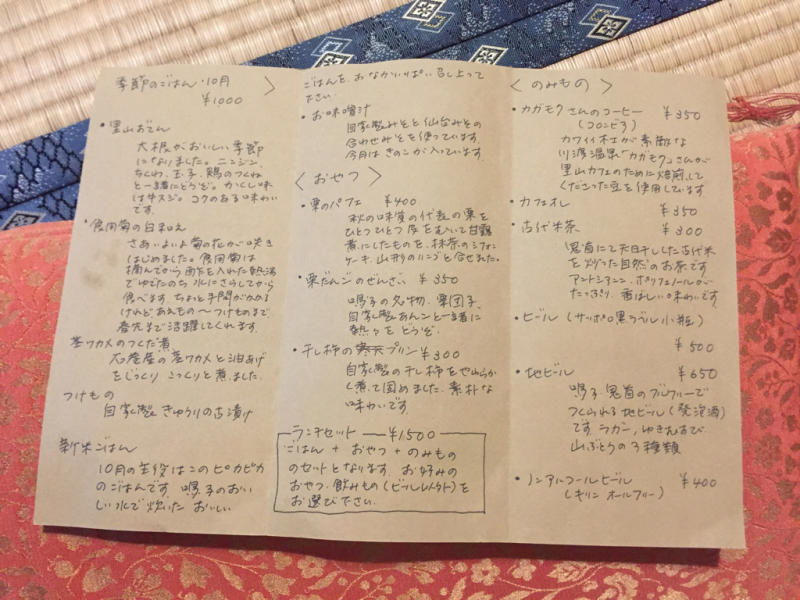 季節のごはん・10月 〉
¥1000
・里山おでん
大根がおいしい季節
になりました。ニンジン、
ちくわ、玉子、鶏のつくね
と一緒にどうぞ。かくし味
は牛スジ。コクのある味わい
です。
・食用菊の白和え
さあいよいよ菊の花が咲き
はじめました。食用菊は
摘んでから酢を入れた熱湯
でゆでたのち 水にさらしてから
食べます。ちょっと手間がかかる
けれどあえもの〜つけものまで
春先まで活躍してくれます。
茎ワカメのつくだ煮
石巻産の茎ワカメと油あげ
をじっくり こっくりと煮ました。
つけもの
自家製 きゅうりの古漬け
新米ごはん
10月の主役はこのピカピカ
のごはんです 鳴子のおい
しい水で炊いた おいしい
ごはんを、おなかいっぱい召し上って
下さい。
・お味噌汁
自家製みそと仙台みその
合わせみそを使っています。
今月は きのこが入っています。
〈 おやつ 〉
・栗のパフェ ¥400
秋の味覚の代表の栗を
ひとつひとつ 皮をむいて甘露
煮にしたものを、抹茶のシフォン
ケーキ、山形のリンゴと合せました。
・栗だんごのぜんざい ¥350
鳴子の名物、栗団子、
自家製あんこと一緒に
熱々を どうぞ。
・干し柿の寒天プリン ¥300
自家製の干し柿をやわらか
く煮て固めました。素朴な
味わいです。
ランチセット ― ¥1500
ごはん + おやつ + のみもの
のセットとなります。お好みの
おやつ、飲みもの(ビール以外)を
お選び下さい。
〈 のみもの 〉
・カガモクさんのコーヒー ¥350
(コロンビア)
カワイイ木工が素敵な
川渡温泉「カガモク」さんが
里山カフェのために焙煎して
くださった豆を使用しています
・カフェオレ ¥350
・古代米茶 ¥300
鬼首にて天日干しした古代米
を炒った自然のお茶です
アントシアニン、ポリフェノールが
たっぷり。香ばしい味わいです。
・ビール (サッポロ黒ラベル小瓶)
¥500
・地ビール ¥650
鳴子 鬼首のブルワリーで
つくられる地ビール(発泡酒)
です ラガー、ゆきむすび
山ぶどうの3種類
・ノンアルコールビール ¥400
(キリン オールフリー)